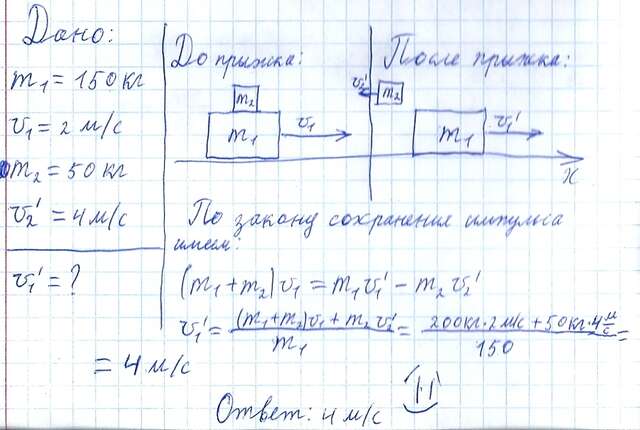 Дано:
m₁ = 150 кг
v₁ = 2 м/с
m₂ = 50 кг
v₂' = 4 м/с
v₁' = ?
До прыжка:
m₂
m₁
v₁
После прыжка:
v₂'
m₂
m₁
v₁'
x
По закону сохранения импульса
имеем:
(m₁+m₂)v₁ = m₁v₁' - m₂v₂'
v₁' = (m₁+m₂)v₁ + m₂v₂' / m₁ = 200кг·2м/с + 50кг·4м/с / 150 =
= 4 м/с
Ответ: 4 м/с